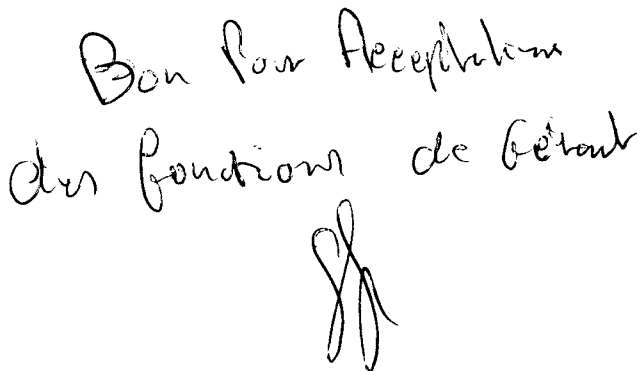 Bon Pour Acceptation
des fonctions de Gérant